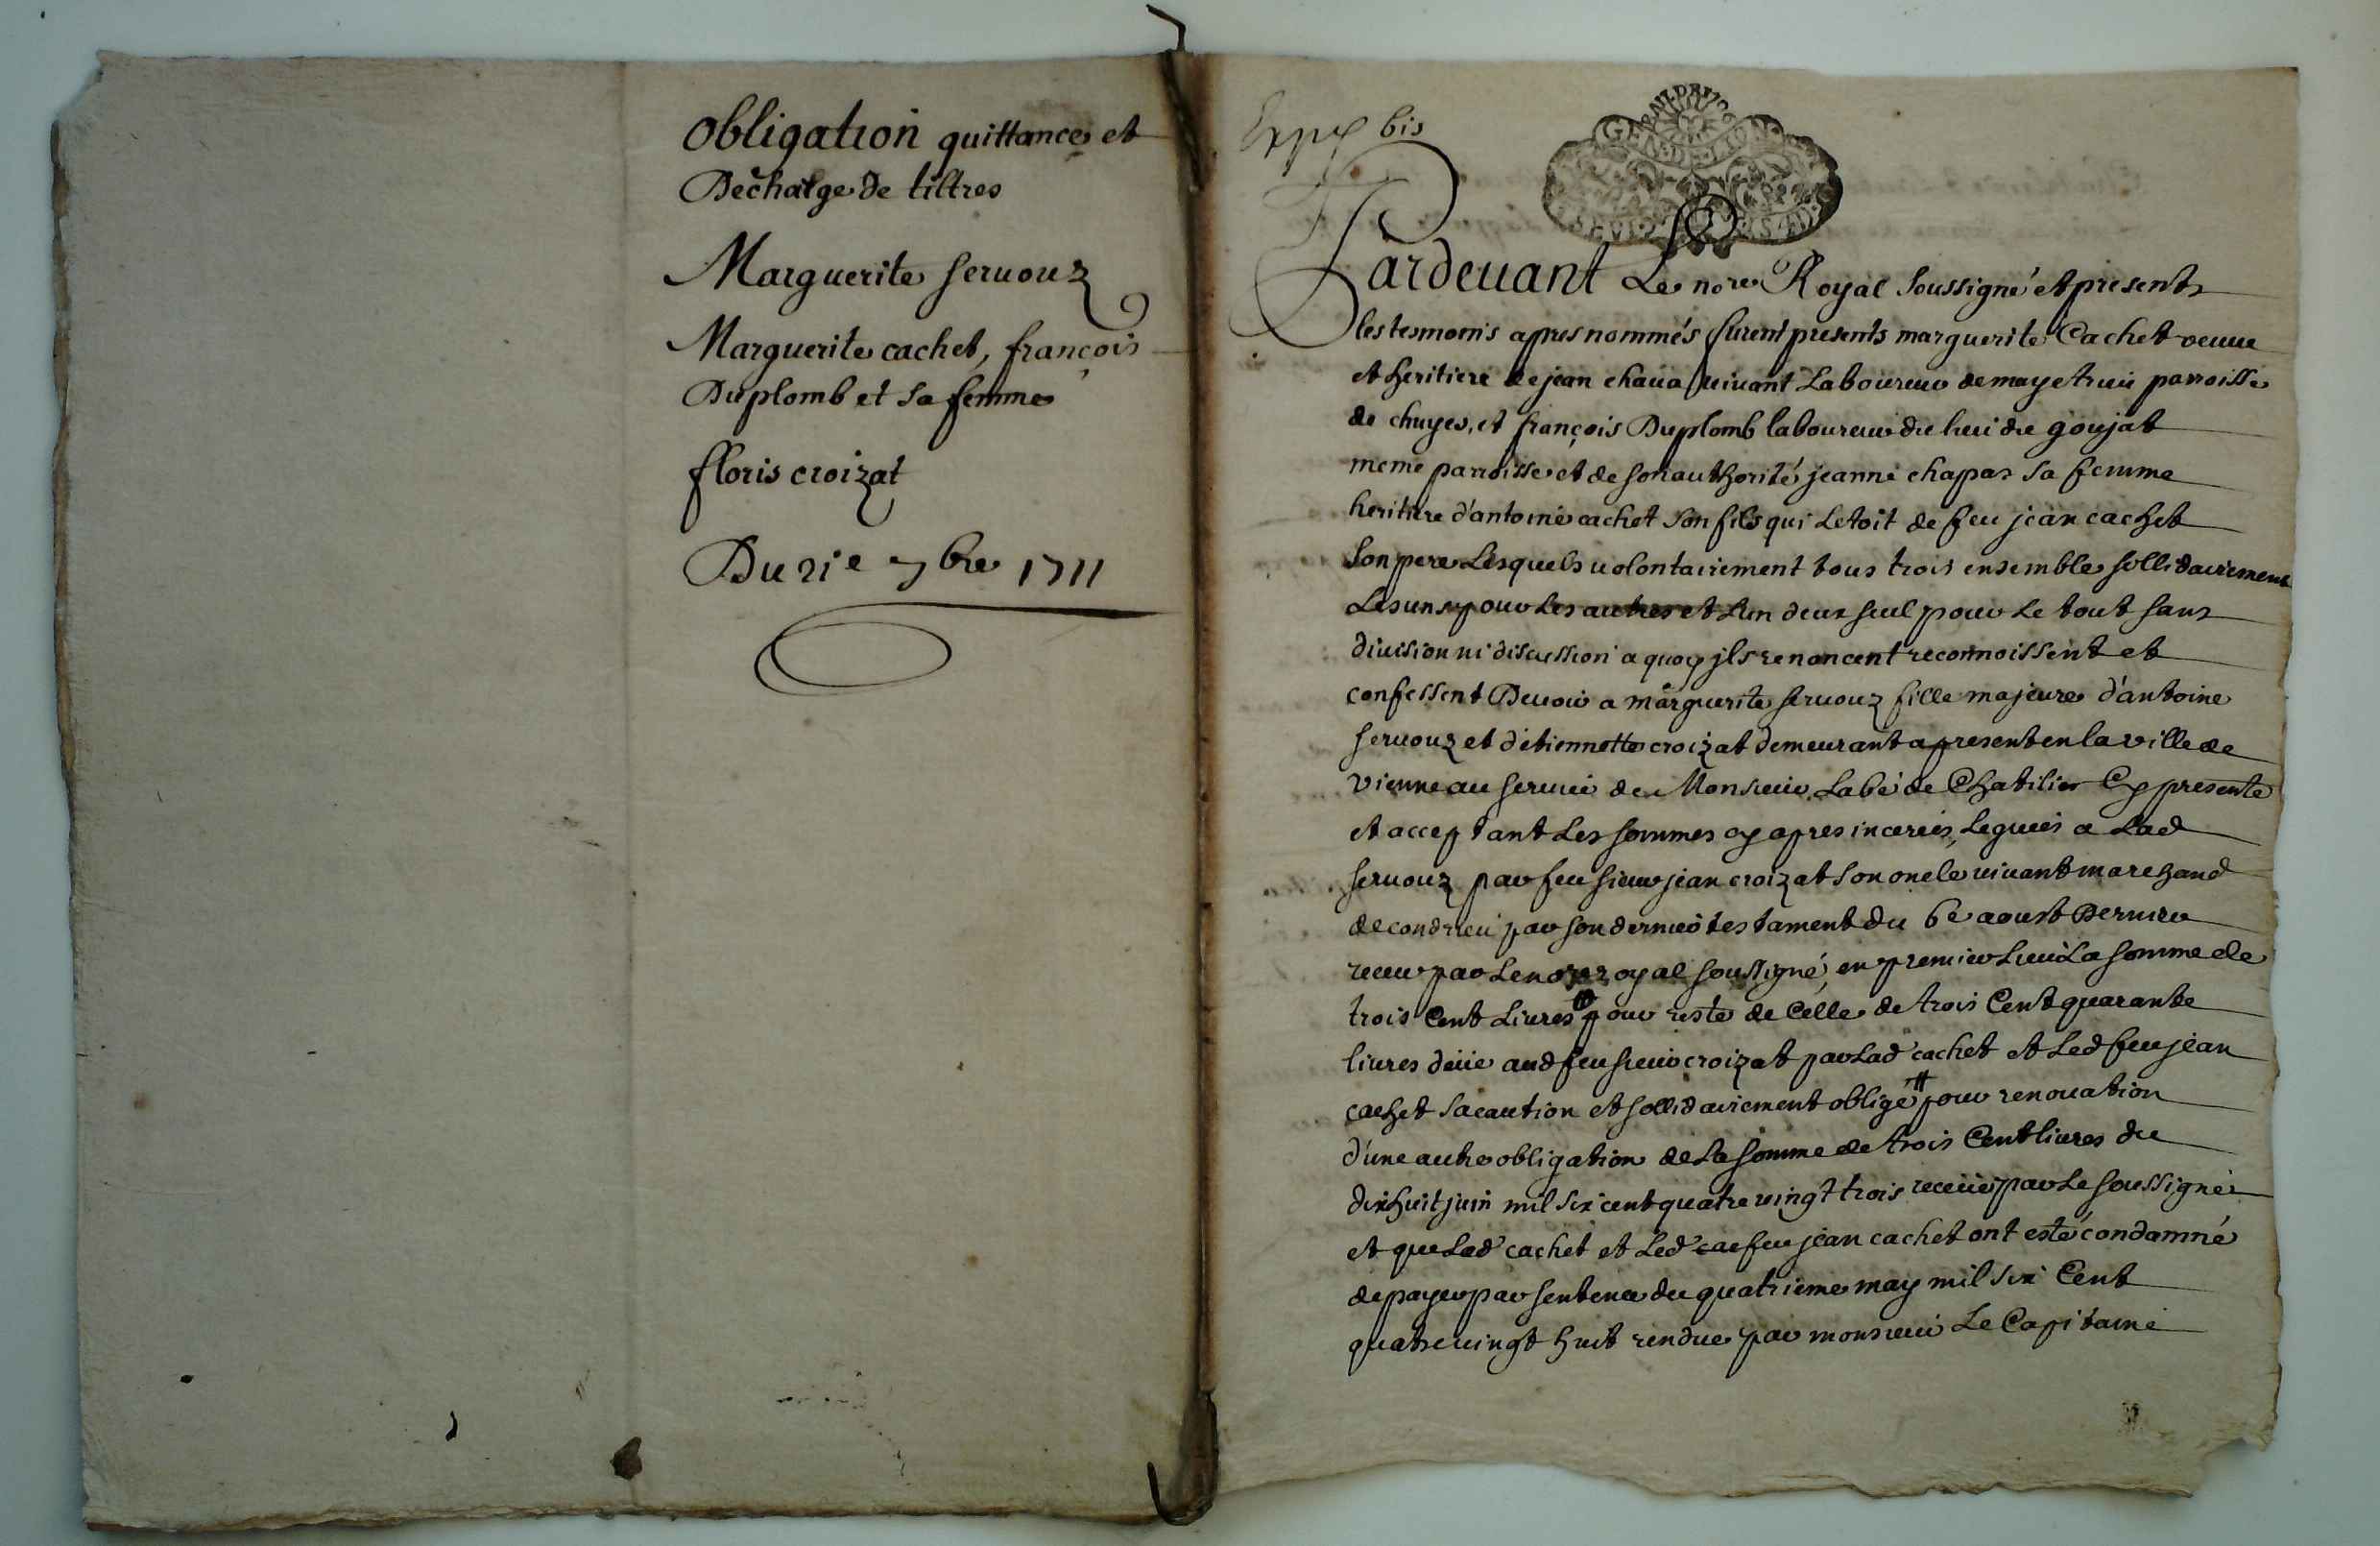 Obligation quittance et
Décharge de tiltres
Marguerite servouz
Marguerite cachet, françois
Duplomb et sa femme
ffloris croizat
Du 21e 7bre 1711
Exp bis
Pardeuant Le nore Royal soussigné et presents
les tesmoins apres nommés furent presents marguerite Cachet veuue
et heritiere de jean chaua viuant Laboureur de parroisse
de chuyes, et françois Duplomb laboureur du lieu du goujat
meme parroisse et de son authorité jeanne chapas sa femme
heritiere d'antoine cachet son fils qui Letoit de feu jean cachet
son pere Lesquels volontairement tous trois ensemble sollidairement
Les uns pour Les autres et L'un deux seul pour Le tout sans
diuision ni discussion a quoy jls renoncent reconnoissent et
confessent Deuoir a marguerite seruouz fille majeure d'antoine
seruouz et d'etiennette croizat demeurant a present en la ville de
vienne au seruice de Monsieur Labé de Chatilier Cy presente
et acceptant Les sommes cy apres incerées, Leguées a Lad
seruouz par feu sieur jean croizat son oncle viuant marchand
de condrieu par son dernier testament du 6e aoust Dernier
receu par Le nore royal soussigné, en premier Lieu La somme de
trois Cent Liures # pour reste de Celle de trois Cent quarante
liures deüe aud feu sieur croizat par Lad cachet et Led feu jean
cachet sa caution et sollidairement obligé # pour renouation
d'une autre obligation de La somme de trois Cent liures du
dixhuit juin mil six cent quatre vingt trois receüe par Le soussigné
et que Lad cachet et Led feu jean cachet ont esté condamné
de payer par sentence du quatrieme may mil six Cent
quatre uingt huit rendue par monsieur Le Capitaine